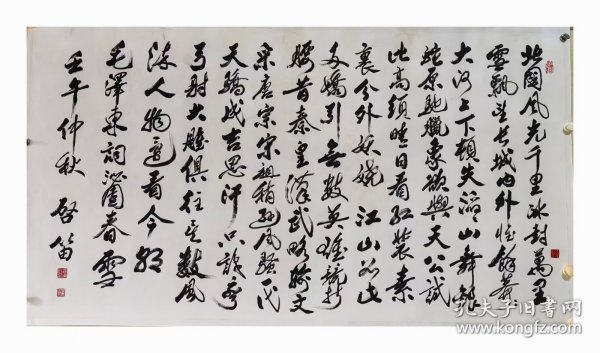 北國風光千里冰封萬里
雪飄望長城内外惟餘莽
大河上下頓失滔山舞銀
蛇原馳蠟象欲與天公試
比高須晴日看紅裝素
裹分外妖嬈 江山如此
多嬌引無數英雄競折
腰昔秦皇漢武略輸文
采唐宗宋祖稍遜風騷一代
天驕成吉思汗只識彎
弓射大雕俱往矣數風
流人物還看今朝
毛澤東詞沁園春雪
壬午仲秋 啓笛
孔夫子旧书网
www.kongfz.com